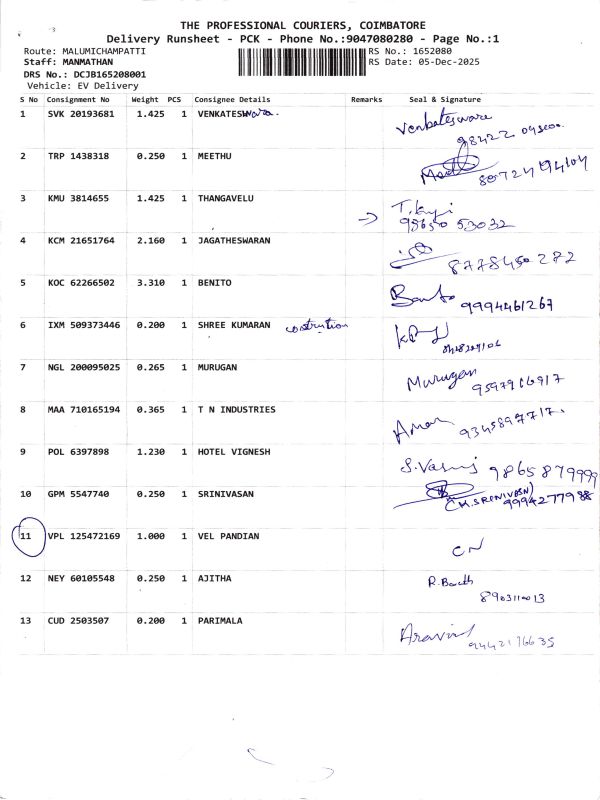 THE PROFESSIONAL COURIERS, COIMBATORE
Delivery Runsheet - PCK - Phone No.:9047080280 - Page No.:1
Route: MALUMICHAMPATTI RS No.: 1652080
Staff: MANMATHAN RS Date: 05-Dec-2025
DRS No.: DCJB165208001
Vehicle: EV Delivery
S No Consignment No Weight PCS Consignee Details Remarks Seal & Signature
1 SVK 20193681 1.425 1 VENKATESwara. Venkateswara
98422
2 TRP 1438318 0.250 1 MEETHU
80724 94104
3 KMU 3814655 1.425 1 THANGAVELU
98650 53032
4 KCM 21651764 2.160 1 JAGATHESWARAN
8778450272
5 KOC 62266502 3.310 1 BENITO 9994461267
6 IXM 509373446 0.200 1 SHREE KUMARAN
7 NGL 200095025 0.265 1 MURUGAN Murugan
9597916917
8 MAA 710165194 0.365 1 T N INDUSTRIES
9345897717.
9 POL 6397898 1.230 1 HOTEL VIGNESH 9865879999
10 GPM 5547740 0.250 1 SRINIVASAN
9994277988
11 VPL 125472169 1.000 1 VEL PANDIAN
CN
12 NEY 60105548 0.250 1 AJITHA
13 CUD 2503507 0.200 1 PARIMALA Aravind
9442176635